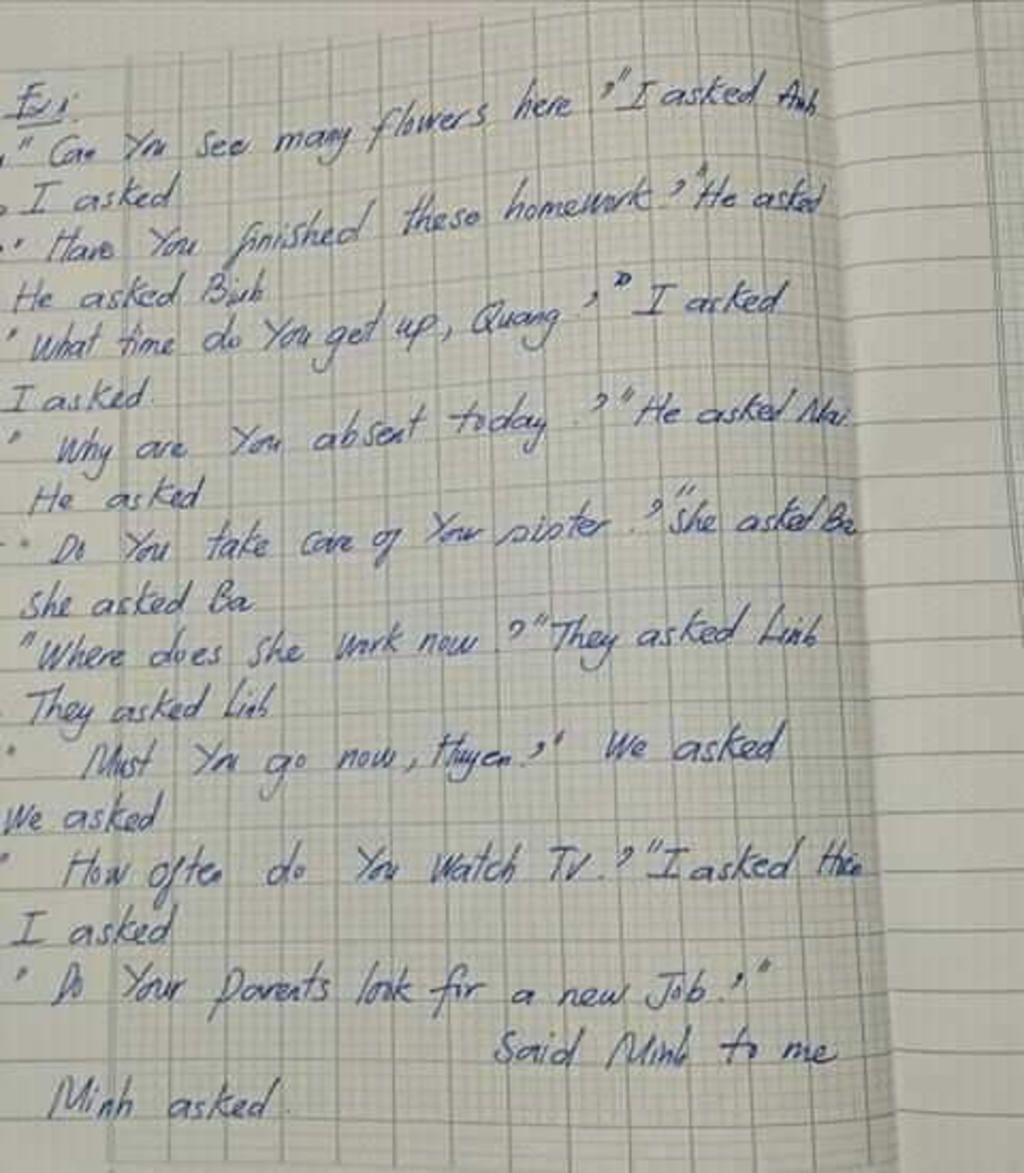 Ex:
" Can you see many flowers here ?" I asked Anh
I asked
" Have you finished these homework ?" He asked
He asked Binh
" What time do you get up, Quang ?" I asked
I asked
" Why are you absent today ?" He asked Mai
He asked
" Do you take care of your sister ?" She asked Ba
She asked Ba
"Where does she work now ?" They asked Linh
They asked Linh
" Must you go now, Huyen ?" We asked
We asked
" How often do you watch TV ?" I asked
I asked
" Do your parents look for a new Job ?"
Said Minh to me
Minh asked